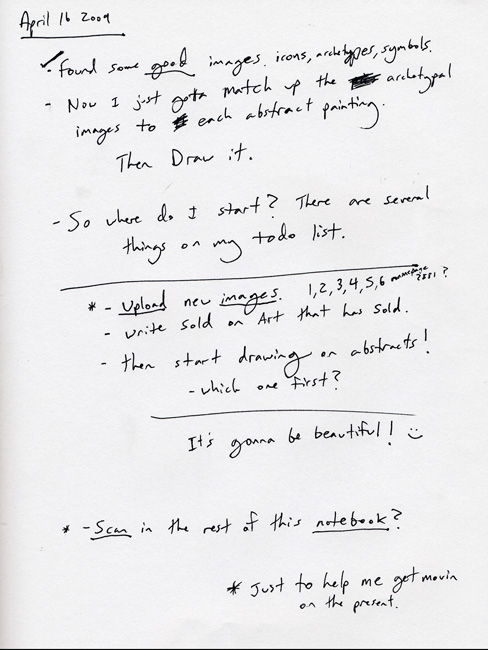 April 16 2009
- Found some good images. icons, archetypes, symbols.
- Now I just gotta match up the archetypal
images to each abstract painting.
Then Draw it.
- So where do I start? There are several
things on my todo list.
* - Upload new images. 1, 2, 3, 4, 5, 6
- write sold on Art that has sold.
- then start drawing on abstracts!
- which one first?
It's gonna be beautiful! :)
* - Scan in the rest of this notebook?
* Just to help me get movin
on the present.